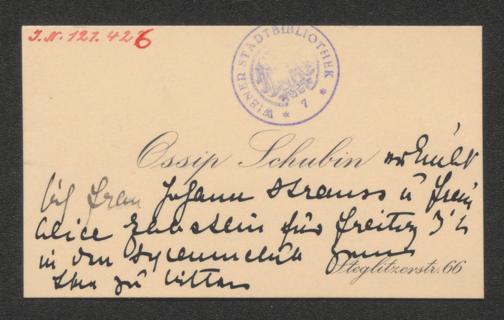 J.N. 121.426
WIENER STADTBIBLIOTHEK
* 7 *
Ossip Schubin erlaubt
sich Frau Johann Strauss u
Alice Epstein für Freitag
in den Lyceumclub
Thee zu bitten
Steglitzerstr. 66